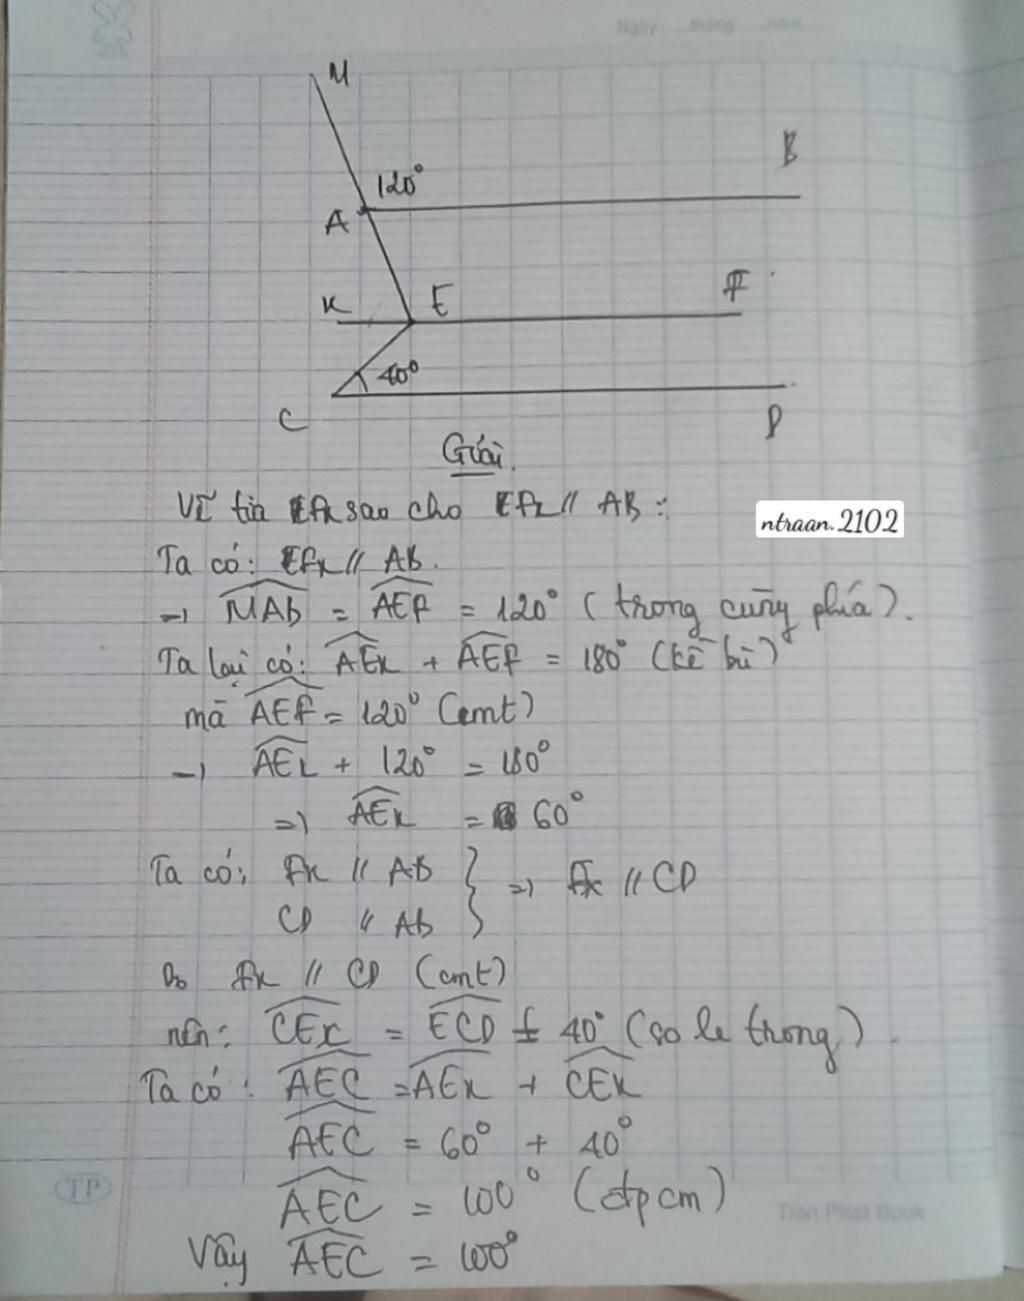 Ngày tháng năm
M
120° B
A
K E F
40°
C D
Giải.
Vẽ tia Fx sao cho EFx // AB :
ntraan.2102
Ta có: EFx // AB.
→ MAB = AEF = 120° (trong cùng phía).
Ta lại có: AEx + AEF = 180° (kề bù)
mà AEF = 120° (cmt)
→ AEx + 120° = 180°
=> AEx = 60°
Ta có: Fx // AB => Fx // CD
CD // AB
Do Fx // CD (cmt)
nên: CEx = ECD = 40° (so le trong).
Ta có: AEC = AEx + CEx
AEC = 60° + 40°
AEC = 100° (đpcm)
TP Tien Phat Book
Vậy AEC = 100°